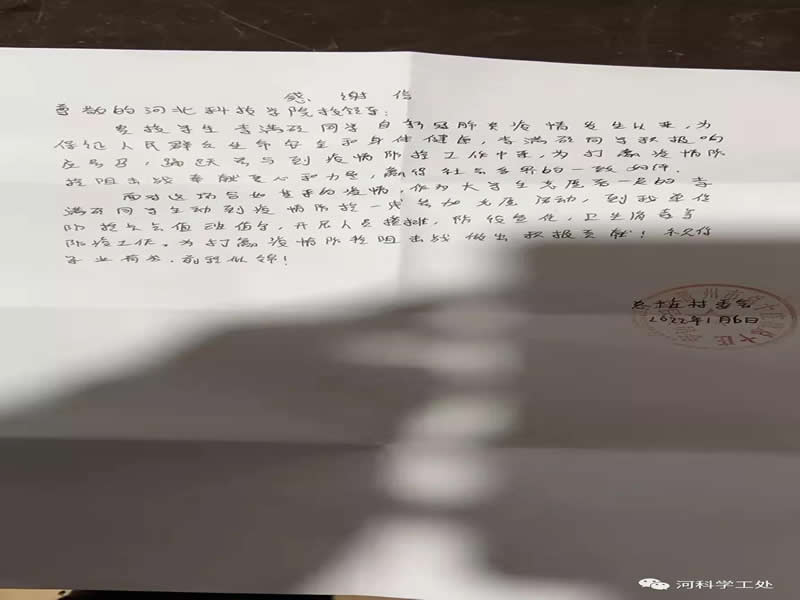 感谢信
尊敬的河北科技学院校领导:
贵校学生李满在同学自新冠肺炎疫情发生以来,为
保证人民群众生命安全和身体健康,李满在同学积极响
应号召,踊跃参与到疫情防控工作中来,为打赢疫情防
控阻击战奉献爱心和力量,赢得社会各界的一致好评。
面对这场突如其来的疫情,作为大学生党员 的李
满在同学主动到疫情防控一线参加 活动,到我单位
防控 点值班值守,开展人员摸排,防控 ,卫生消毒等
防疫工作。为打赢疫情防控阻击战做出积极贡献!祝
学业有成,前程似锦!
庄村委会
2022年1月6日
河科学工处